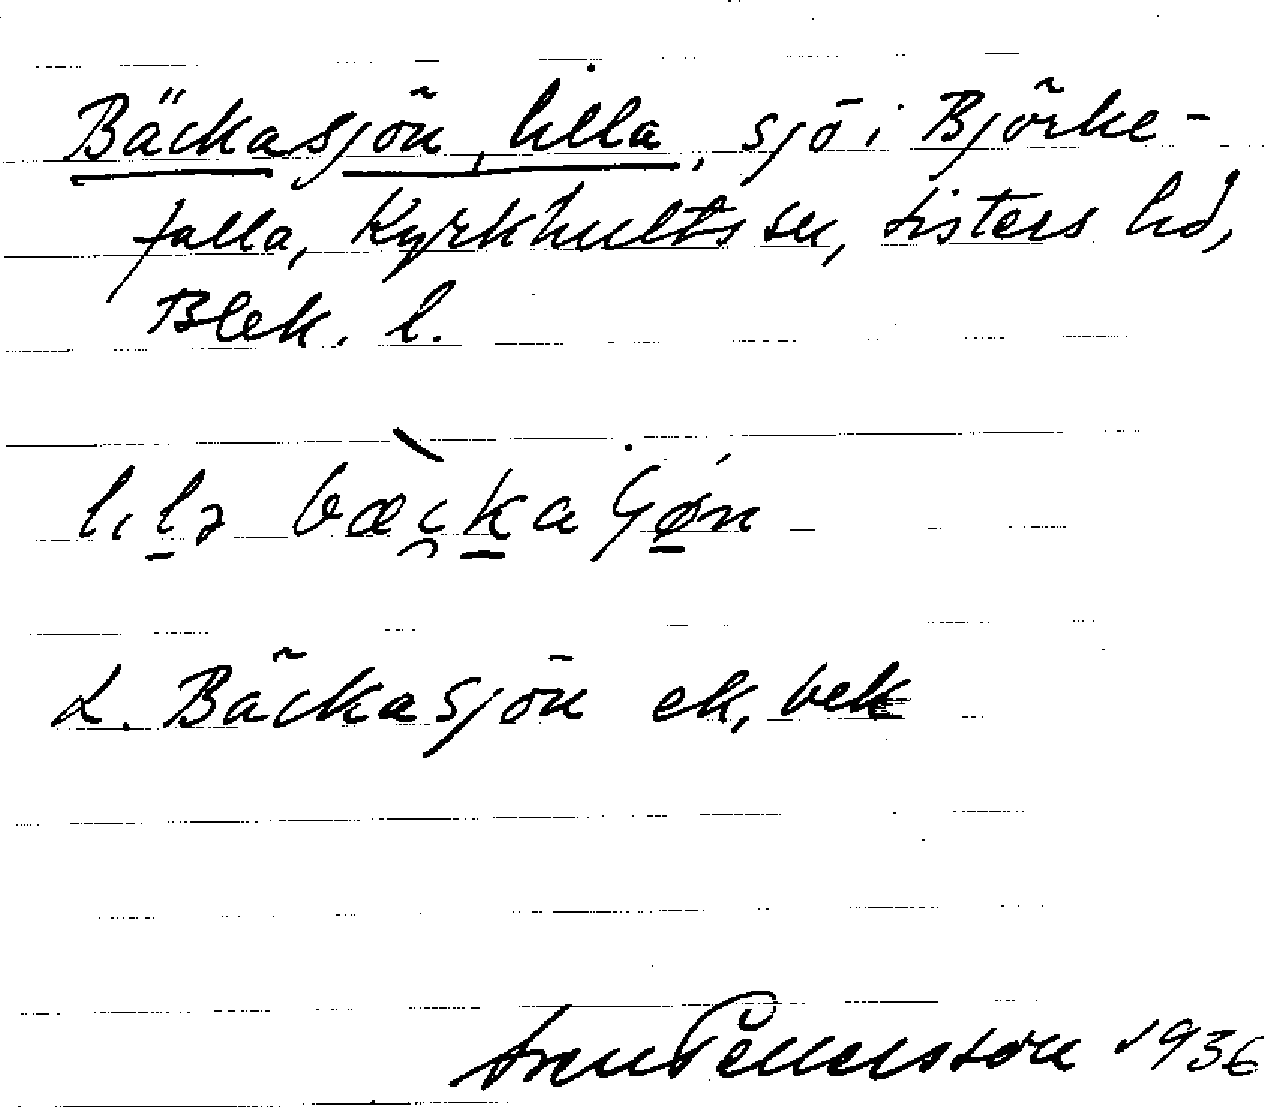 Bäckasjön, lilla, sjö i Björke-
falla, Kyrkhults sn, Listers hd,
Blek. l.
lılə bæckaʃøn
L. Bäckasjön ek, bek
Pettersson 1936